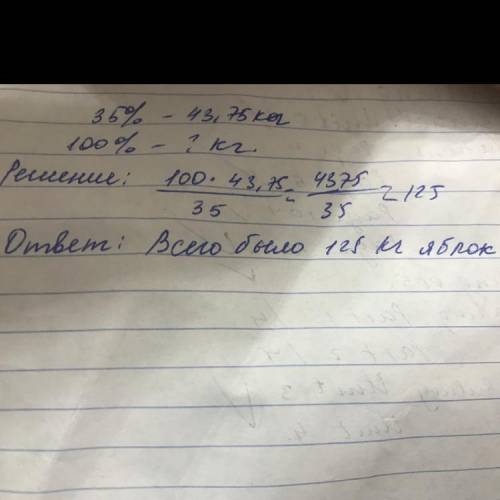 35% - 43,75 кг
100% - ? кг.
Решение: 100 · 43,75 / 35 = 4375 / 35 = 125
Ответ: Всего было 125 кг яблок